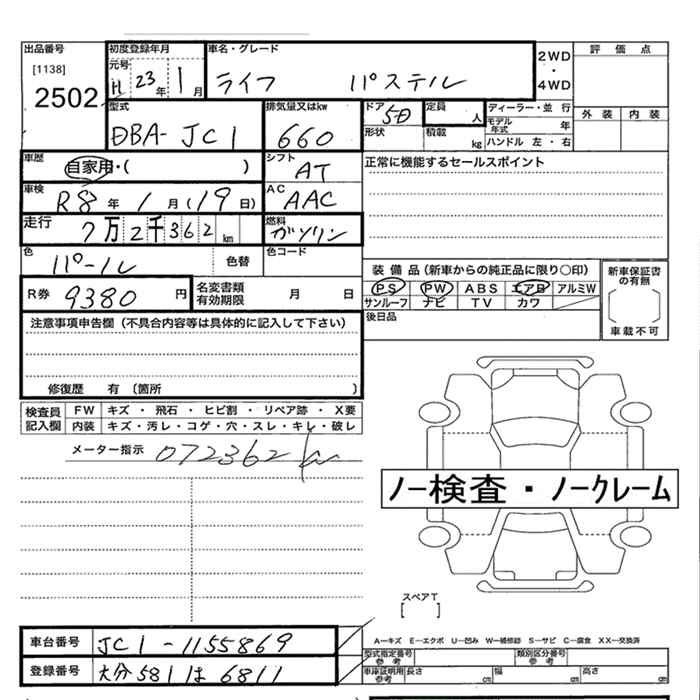 出品番号 初度登録年月 車名・グレード 2WD 評価点
[1138] 元号 ・
2502 H 23年 1月 ライフ パステル 4WD
型式 排気量又はkw ドア 5D 定員 人 ディーラー・並行 外装 内装
DBA-JC1 660 形状 積載 kg モデル年式 年
ハンドル 左・右
車歴 自家用・( ) シフト AT 正常に機能するセールスポイント
車検 R8年 1月(19日) AC AAC
走行 7万2千362km 燃料 ガソリン
色 パール 色替 色コード
装備品(新車からの純正品に限り○印) 新車保証書の有無
R券 9380円 名変書類有効期限 月 日 PS PW ABS エアB アルミW
サンルーフ ナビ TV カワ
注意事項申告欄(不具合内容等は具体的に記入して下さい) 後日品 車載不可
修復歴 有 (箇所 )
検査員記入欄 FW キズ・飛石・ヒビ割・リペア跡・X要
内装 キズ・汚レ・コゲ・穴・スレ・キレ・破レ
メーター指示 072362
ノー検査・ノークレーム
スペアT
[ ]
車台番号 JC1-1155869 A-キズ E-エクボ U-凹み W-補修跡 S-サビ C-腐食 XX-交換済
型式指定番号 参考 類別区分番号 参考
登録番号 大分581は6811 車庫証明用 参考 長さ cm 幅 cm 高さ cm